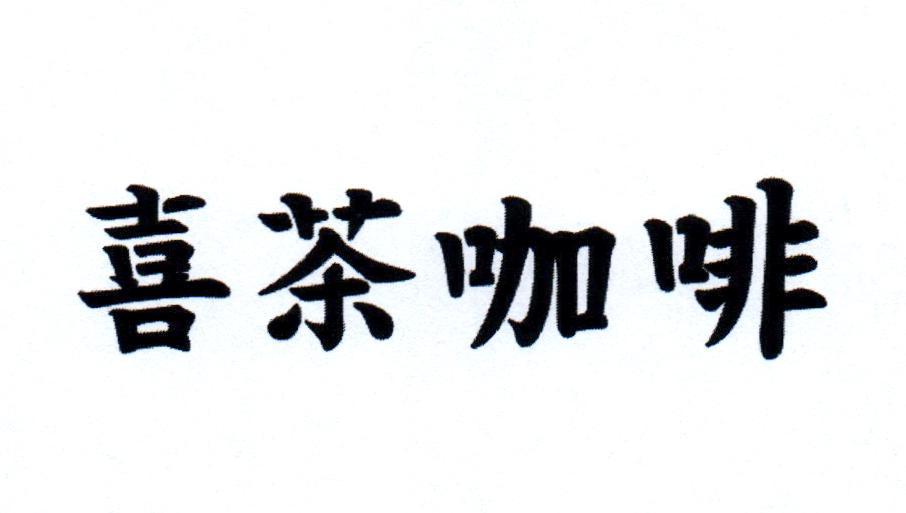 喜茶咖啡